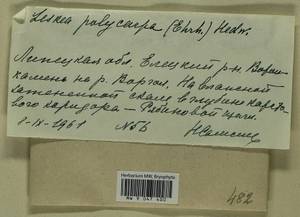 Leskea polycarpa (Ehrh.) Hedw.
Липецкая обл. Елецкий р-н. Воргол
камень на р. Воргол. На влажной
затененной скале в глубине
вого коридора — Рябиновой щели.
8-IX-1961 №5Б
Herbarium MW, Bryophyta
MW 9 047 400
482